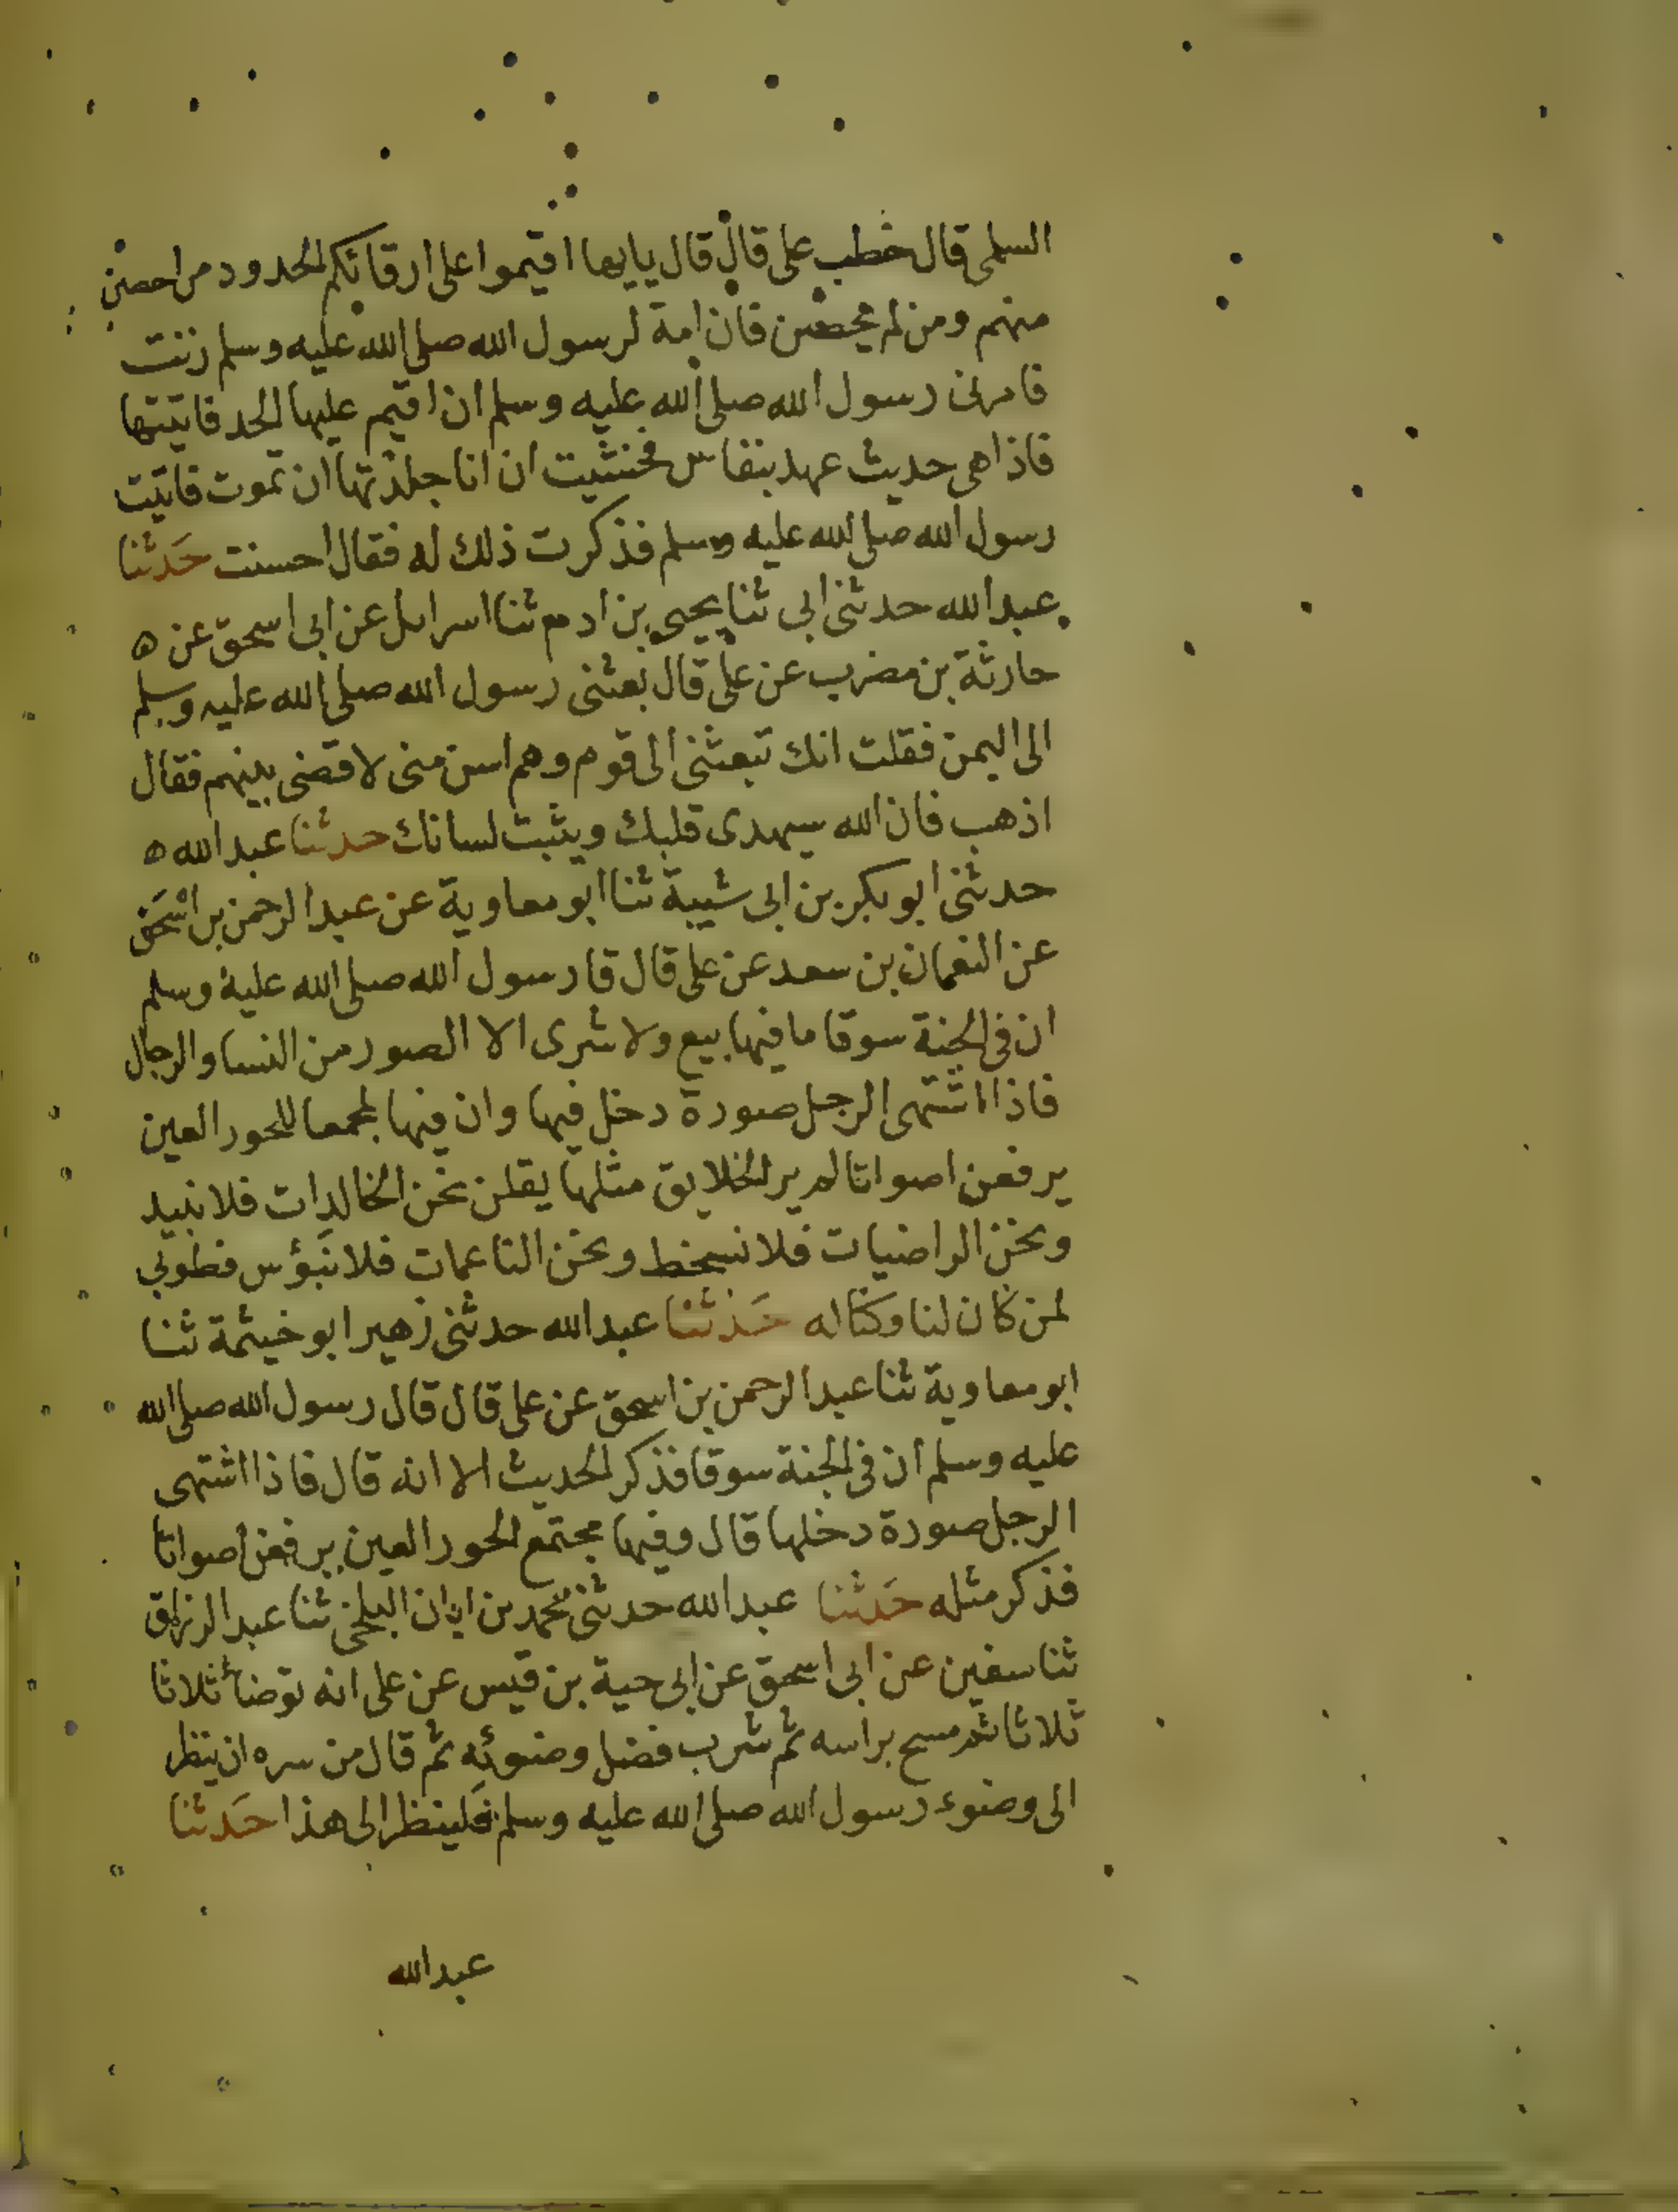 السلمى قال خطب على قال قال يايها اقيموا على ارقائكم الحدود من احصن
منهم ومن لم يحصن فان امة لرسول الله صلى الله عليه وسلم زنت
فامرنى رسول الله صلى الله عليه وسلم ان اقيم عليها الحد فاتيتها
فاذا هى حديث عهد بنفاس فخشيت ان انا جلدتها ان تموت فاتيت
رسول الله صلى الله عليه وسلم فذكرت ذلك له فقال احسنت حَدثنا
عبد الله حدثنى ابى ثنا يحيى بن ادم ثنا اسراىل عن ابى اسحق عن ه
حارثة بن مضرب عن على قال بعثنى رسول الله صلى الله عليه وسلم
الى اليمن فقلت انك تبعثنى الى قوم وهم اسن منى لاقضى بينهم فقال
اذهب فان الله سيهدى قلبك ويثبت لسانك حدثنا عبد الله ه
حدثنى ابو بكر بن ابى شيبة ثنا ابو معاوية عن عبد الرحمن بن اسحَق
عن النعمان بن سعد عن على قال قا رسول الله صلى الله عليه وسلم
ان فى الجنة سوقا ما فيها بيع ولا شرى الا الصور من النسا والرجال
فاذا اشتهى الرجل صورة دخل فيها وان فيها لمجمعا للحور العين
يرفعن اصواتا لم ير الخلايق مثلها يقلن نحن الخالدات فلا نبيد
ونحن الراضيات فلا نسخط ونحن الناعمات فلا نبَؤس فطوبى
لمن كان لنا وكنا له حَدثنا عبد الله حدثنى زهير ابو خيثمة ثنا
ابو معاوية ثنا عبد الرحمن بن اسحق عن على قال قال رسول الله صلى الله
عليه وسلم ان فى الجنة سوقا فذكر الحديث الا انه قال فاذا اشتهى
الرجل صورة دخلها قال وفيها مجتمع الحور العين يرفعن اصواتا
فذكر مثله حَدثنا عبد الله حدثنى محمد بن ابان البلخى ثنا عبد الرزاق
ثنا سفين عن ابى اسحق عن ابى حية بن قيس عن على انه توضأ ثلاثا
ثلاثا ثم مسح براسه ثم شرب فضل وضوئه ثم قال من سره ان ينظر
الى وضوء رسول الله صلى الله عليه وسلم فلينظر الى هذا حَدثنا
عبد الله